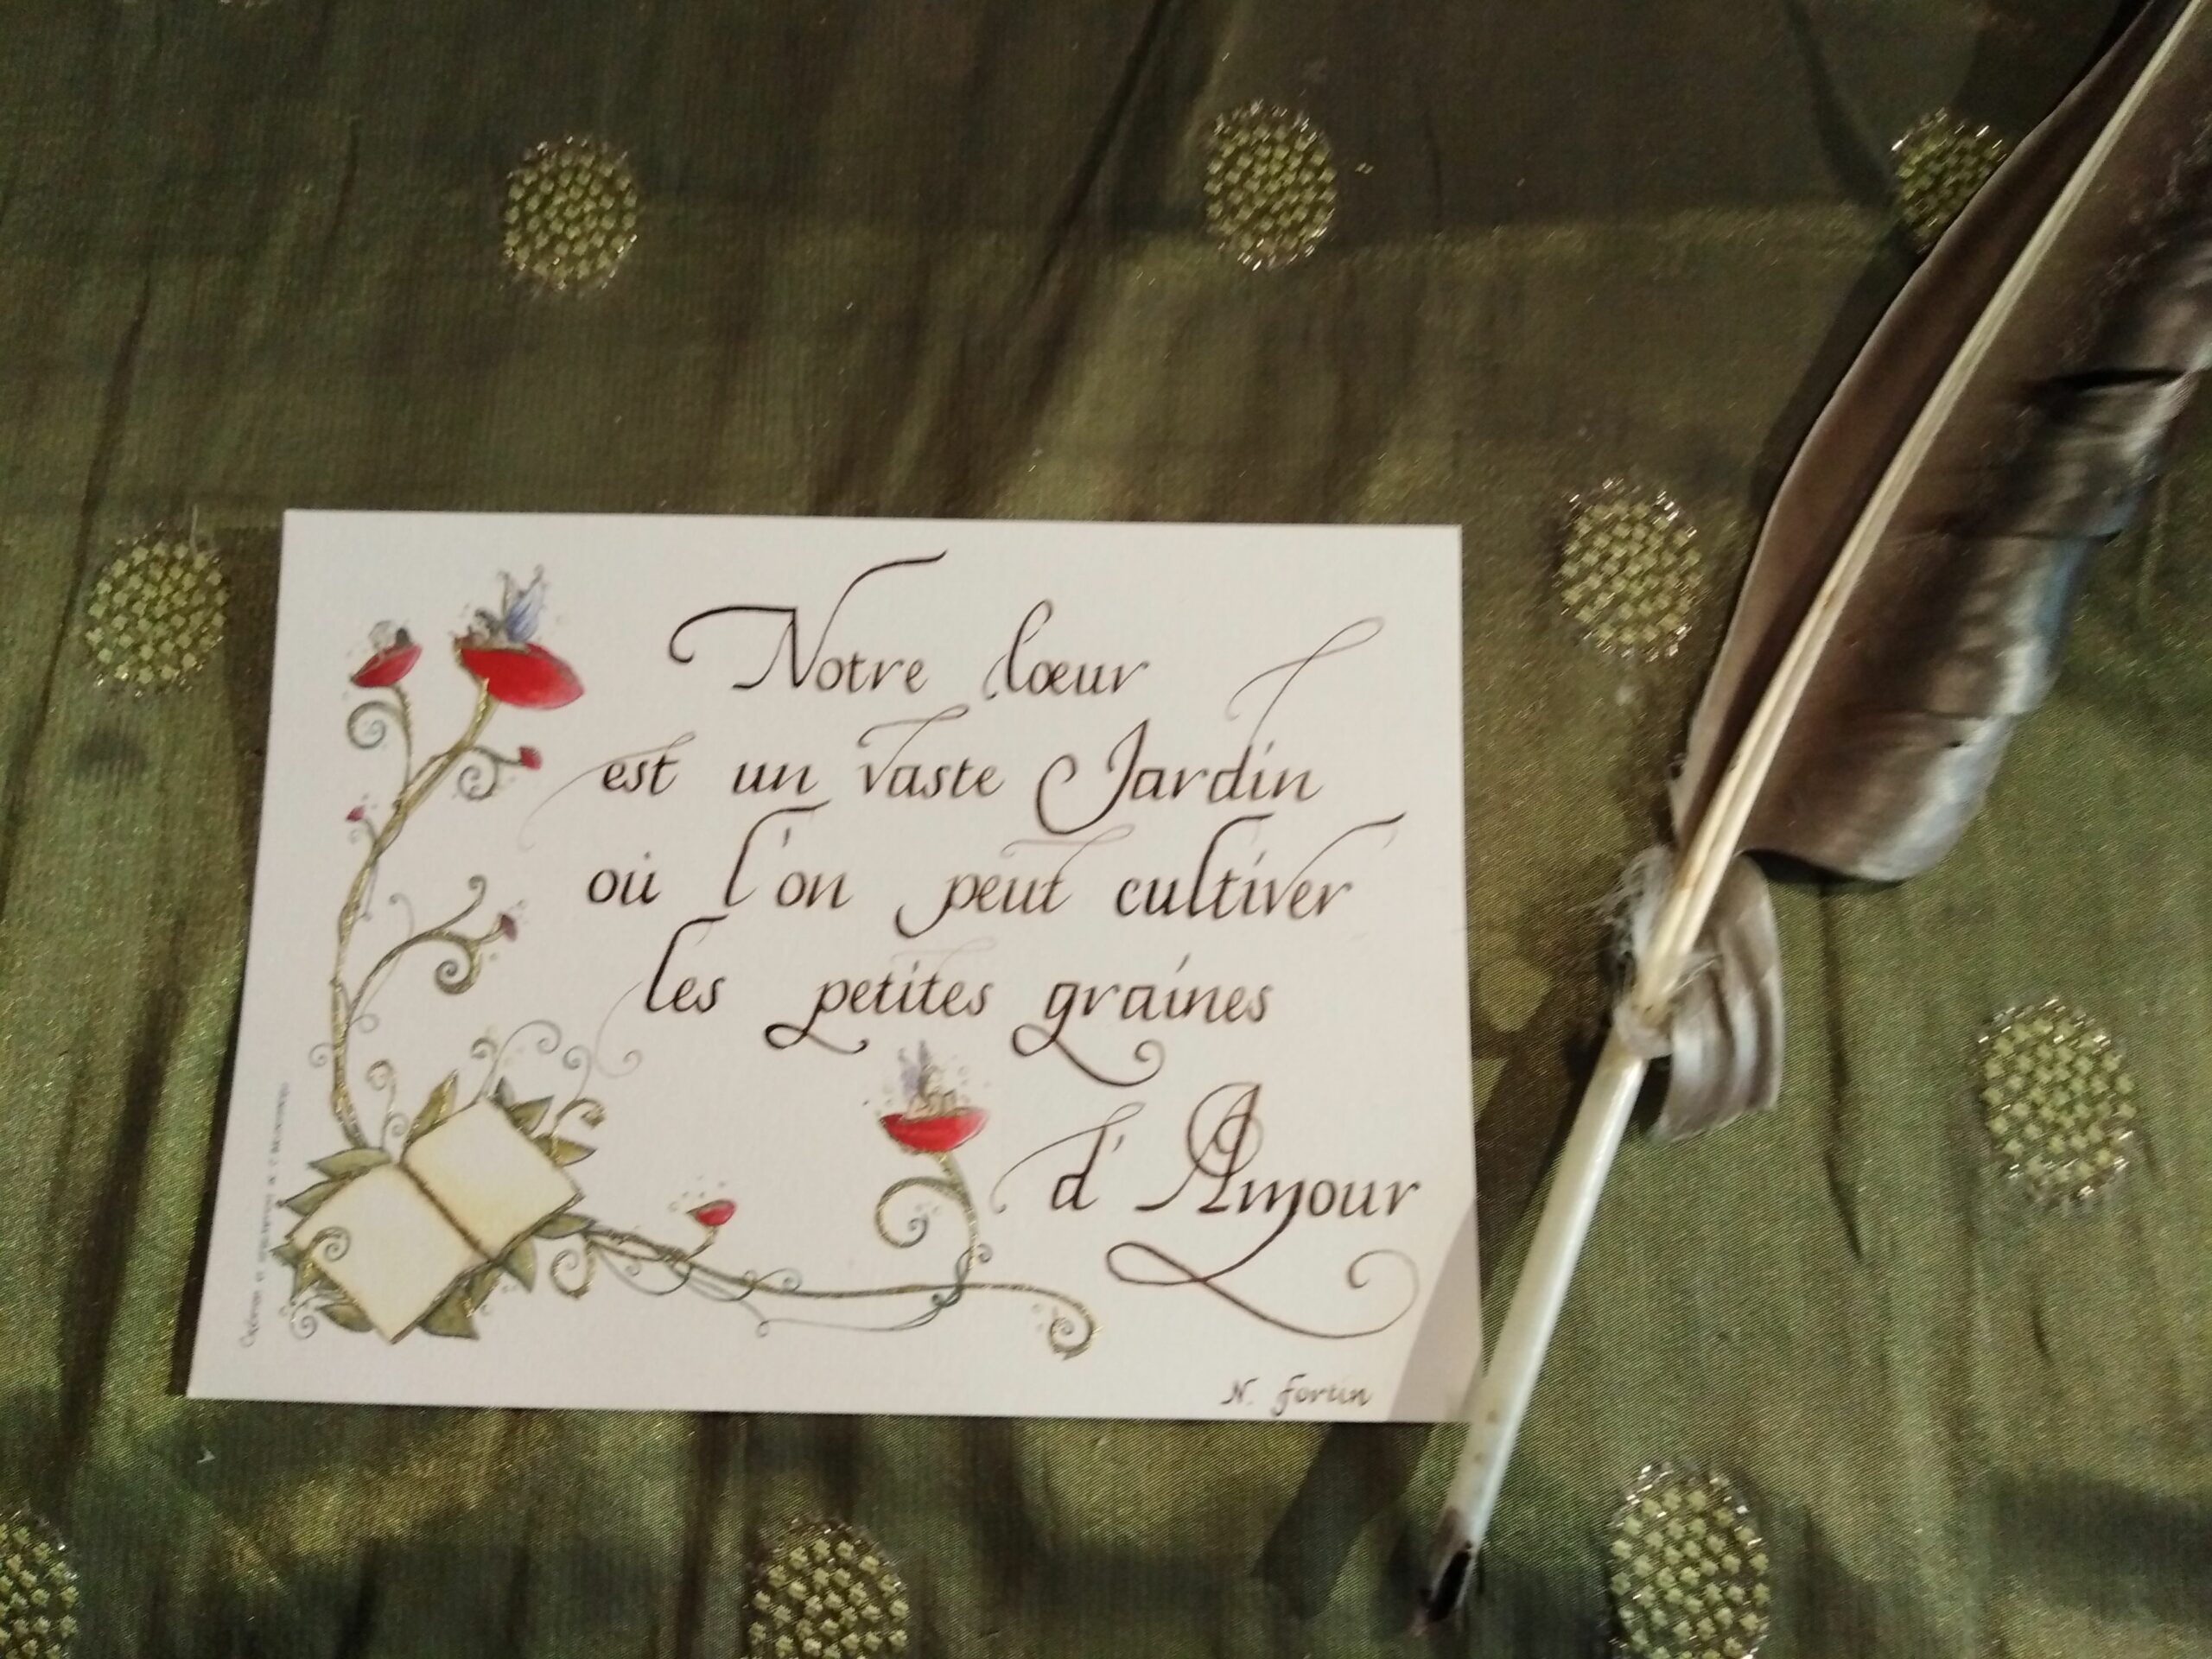 Notre Cœur
est un vaste Jardin
où l'on peut cultiver
les petites graines
d'Amour
N. Fortin